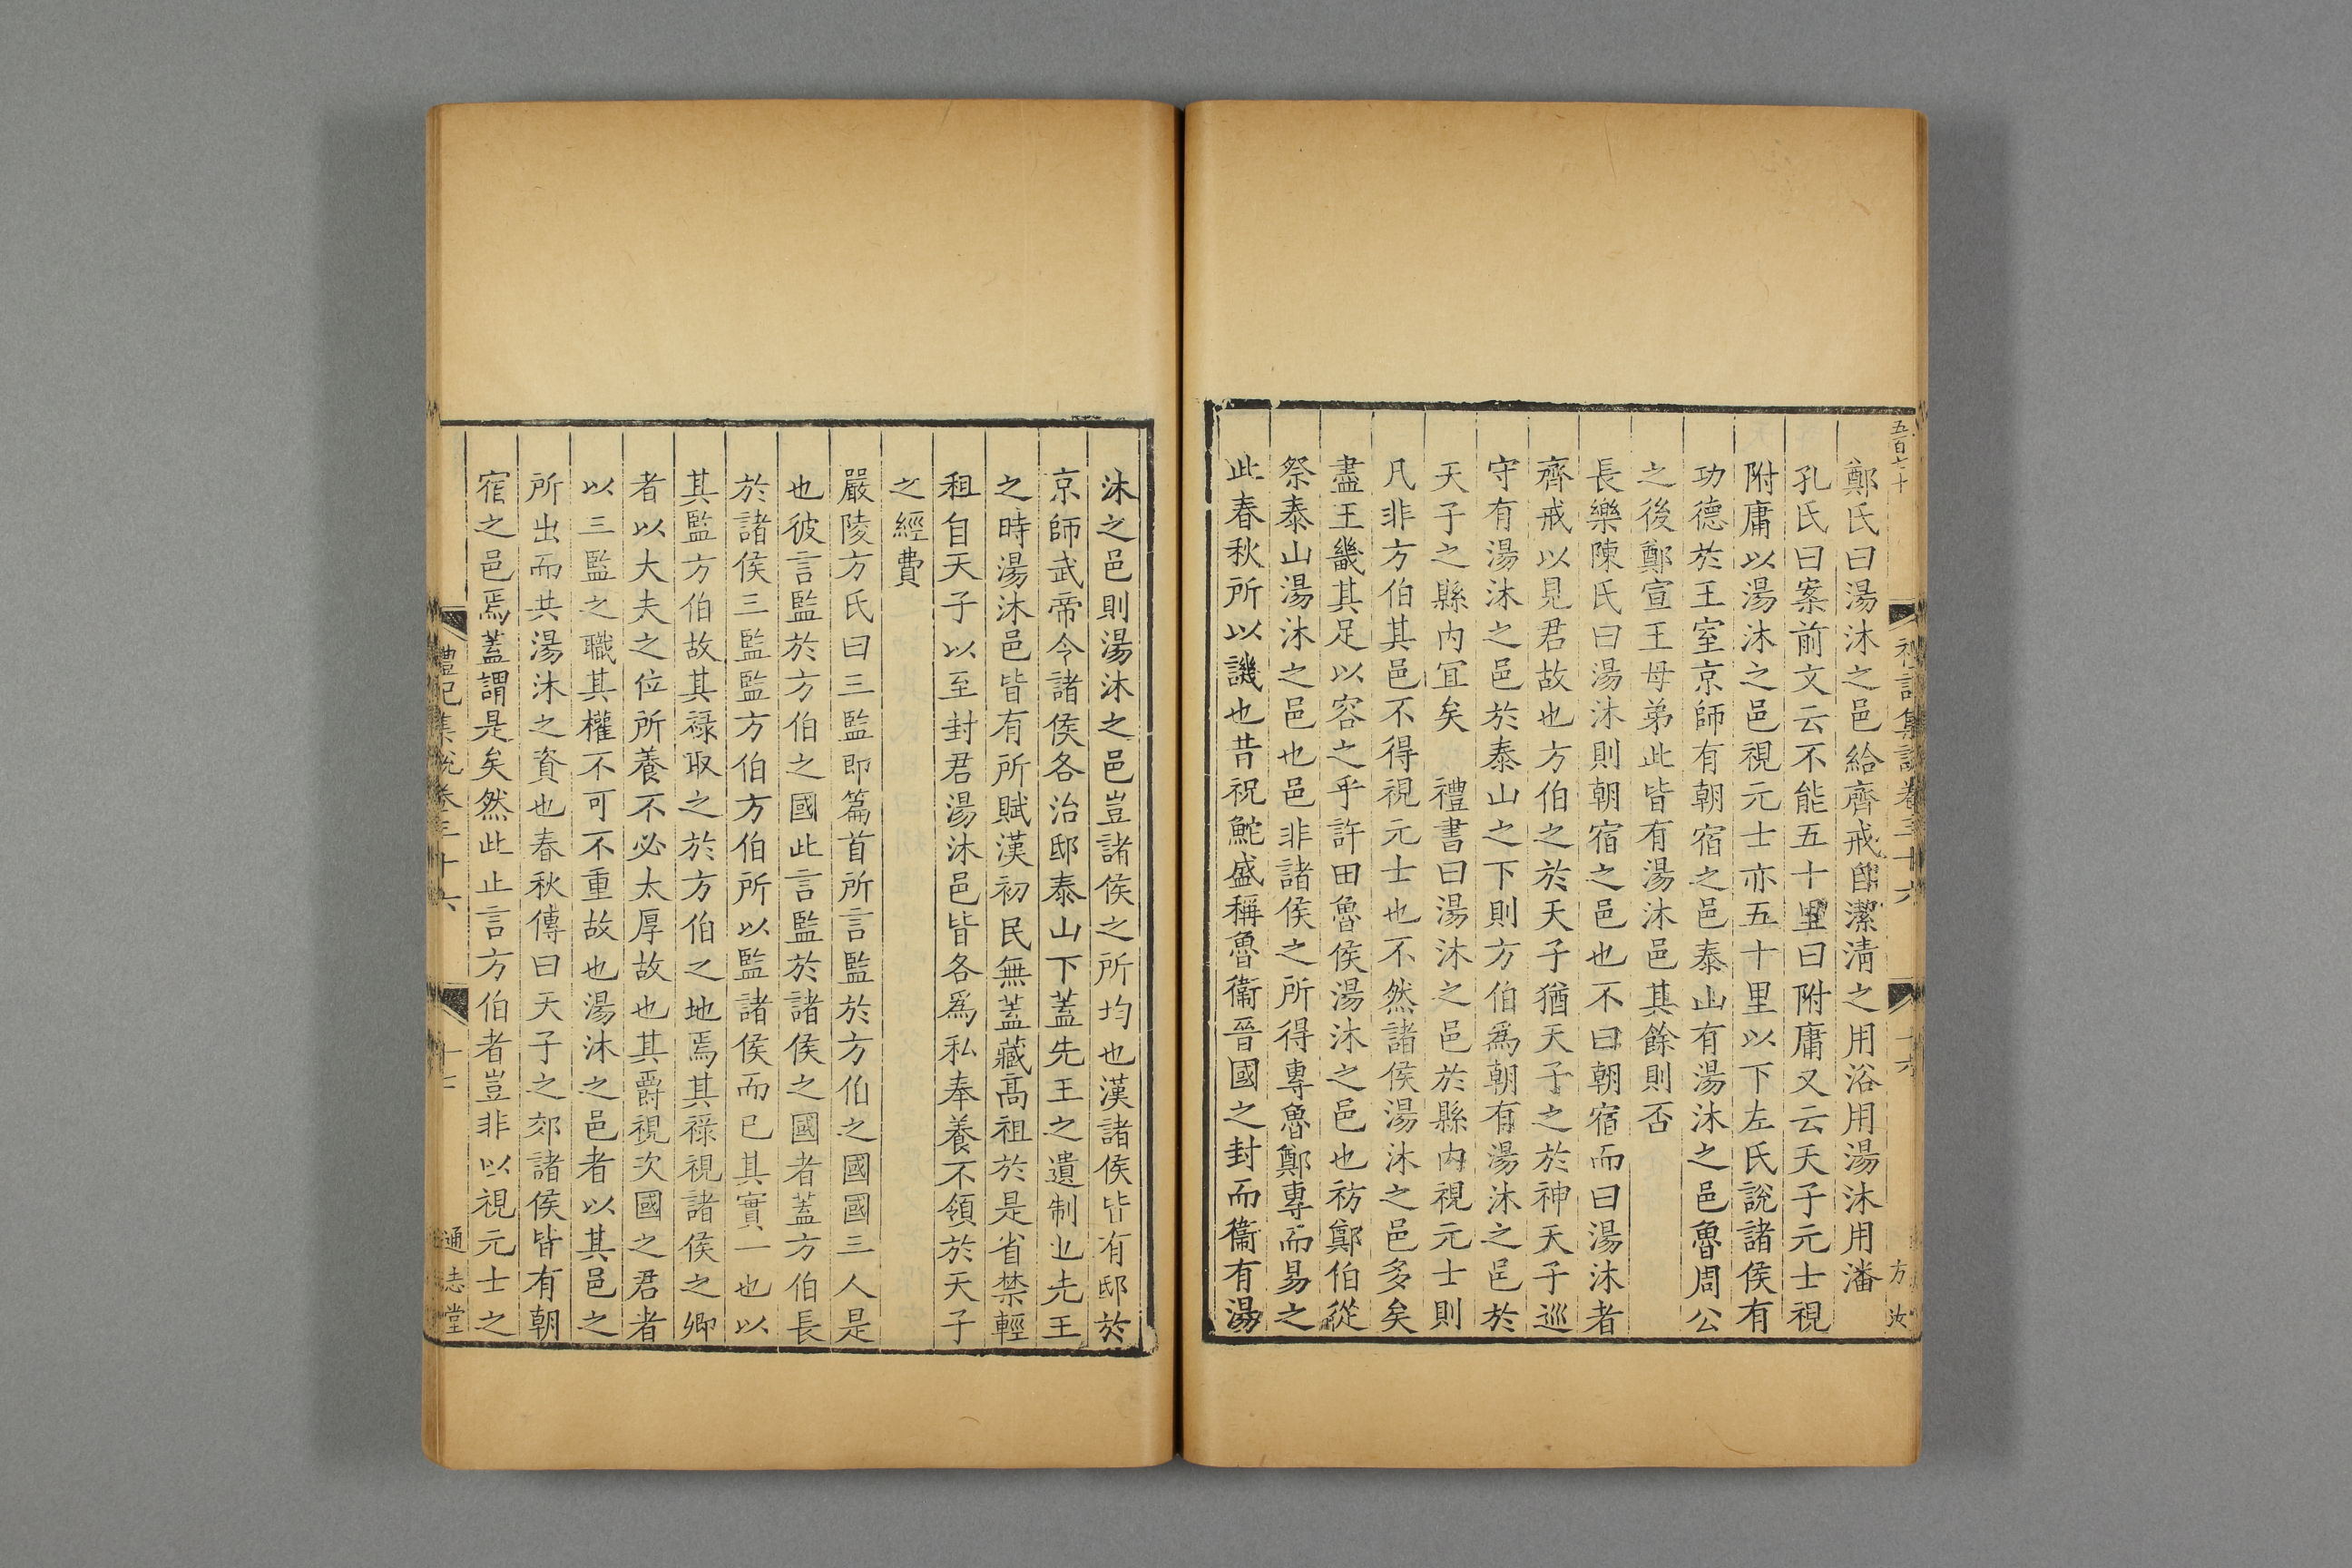 五百七十
禮記集說卷三十六
十六
方汝
鄭氏曰湯沐之邑給齊戒自潔清之用浴用湯沐用潘
孔氏曰案前文云不能五十里曰附庸又云天子元士視
附庸以湯沐之邑視元士亦五十里以下左氏說諸侯有
功德於王室京師有朝宿之邑泰山有湯沐之邑魯周公
之後鄭宣王母弟此皆有湯沐邑其餘則否
長樂陳氏曰湯沐則朝宿之邑也不曰朝宿而曰湯沐者
齊戒以見君故也方伯之於天子猶天子之於神天子巡
守有湯沐之邑於泰山之下則方伯爲朝有湯沐之邑於
天子之縣內冝矣 禮書曰湯沐之邑於縣內視元士則
凡非方伯其邑不得視元士也不然諸侯湯沐之邑多矣
盡王畿其足以容之乎許田魯侯湯沐之邑也祊鄭伯從
祭泰山湯沐之邑也邑非諸侯之所得專魯鄭專而易之
此春秋所以譏也昔祝鮀盛稱魯衞晉國之封而衞有湯
沐之邑則湯沐之邑豈諸侯之所均也漢諸侯皆有邸於
京師武帝令諸侯各治邸泰山下蓋先王之遺制也先王
之時湯沐邑皆有所賦漢初民無蓋藏高祖於是省禁輕
租自天子以至封君湯沐邑皆各爲私奉養不領於天子
之經費
嚴陵方氏曰三監即篇首所言監於方伯之國國三人是
也彼言監於方伯之國此言監於諸侯之國者蓋方伯長
於諸侯三監監方伯方伯所以監諸侯而已其實一也以
其監方伯故其祿取之於方伯之地焉其祿視諸侯之卿
者以大夫之位所養不必太厚故也其爵視次國之君者
以三監之職其權不可不重故也湯沐之邑者以其邑之
所出而共湯沐之資也春秋傳曰天子之郊諸侯皆有朝
宿之邑焉蓋謂是矣然此止言方伯者豈非以視元士之
禮記集說卷三十六
十七
通志堂